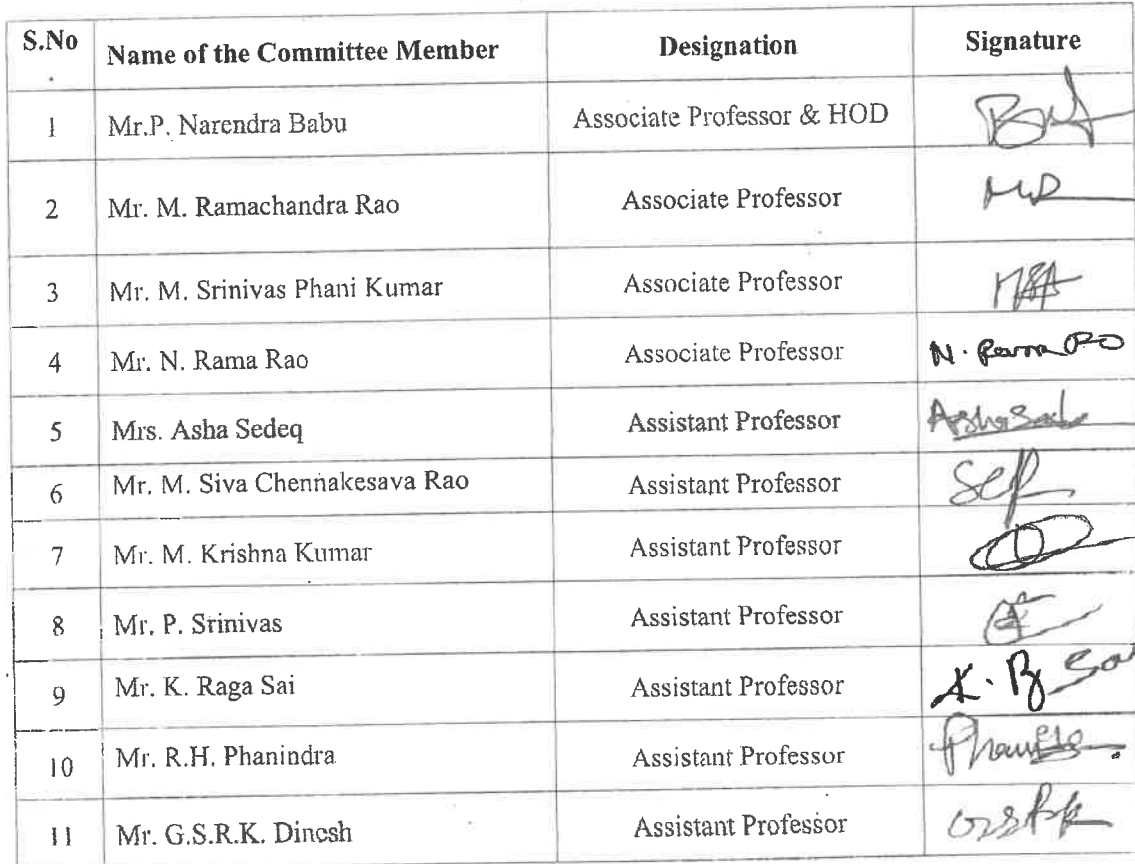 S.No Name of the Committee Member Designation Signature
1 Mr.P. Narendra Babu Associate Professor & HOD
2 Mr. M. Ramachandra Rao Associate Professor
3 Mr. M. Srinivas Phani Kumar Associate Professor
4 Mr. N. Rama Rao Associate Professor N.
5 Mrs. Asha Sedeq Assistant Professor
6 Mr. M. Siva Chennakesava Rao Assistant Professor
7 Mr. M. Krishna Kumar Assistant Professor
8 Mr. P. Srinivas Assistant Professor
9 Mr. K. Raga Sai Assistant Professor K.
10 Mr. R.H. Phanindra Assistant Professor
11 Mr. G.S.R.K. Dinesh Assistant Professor